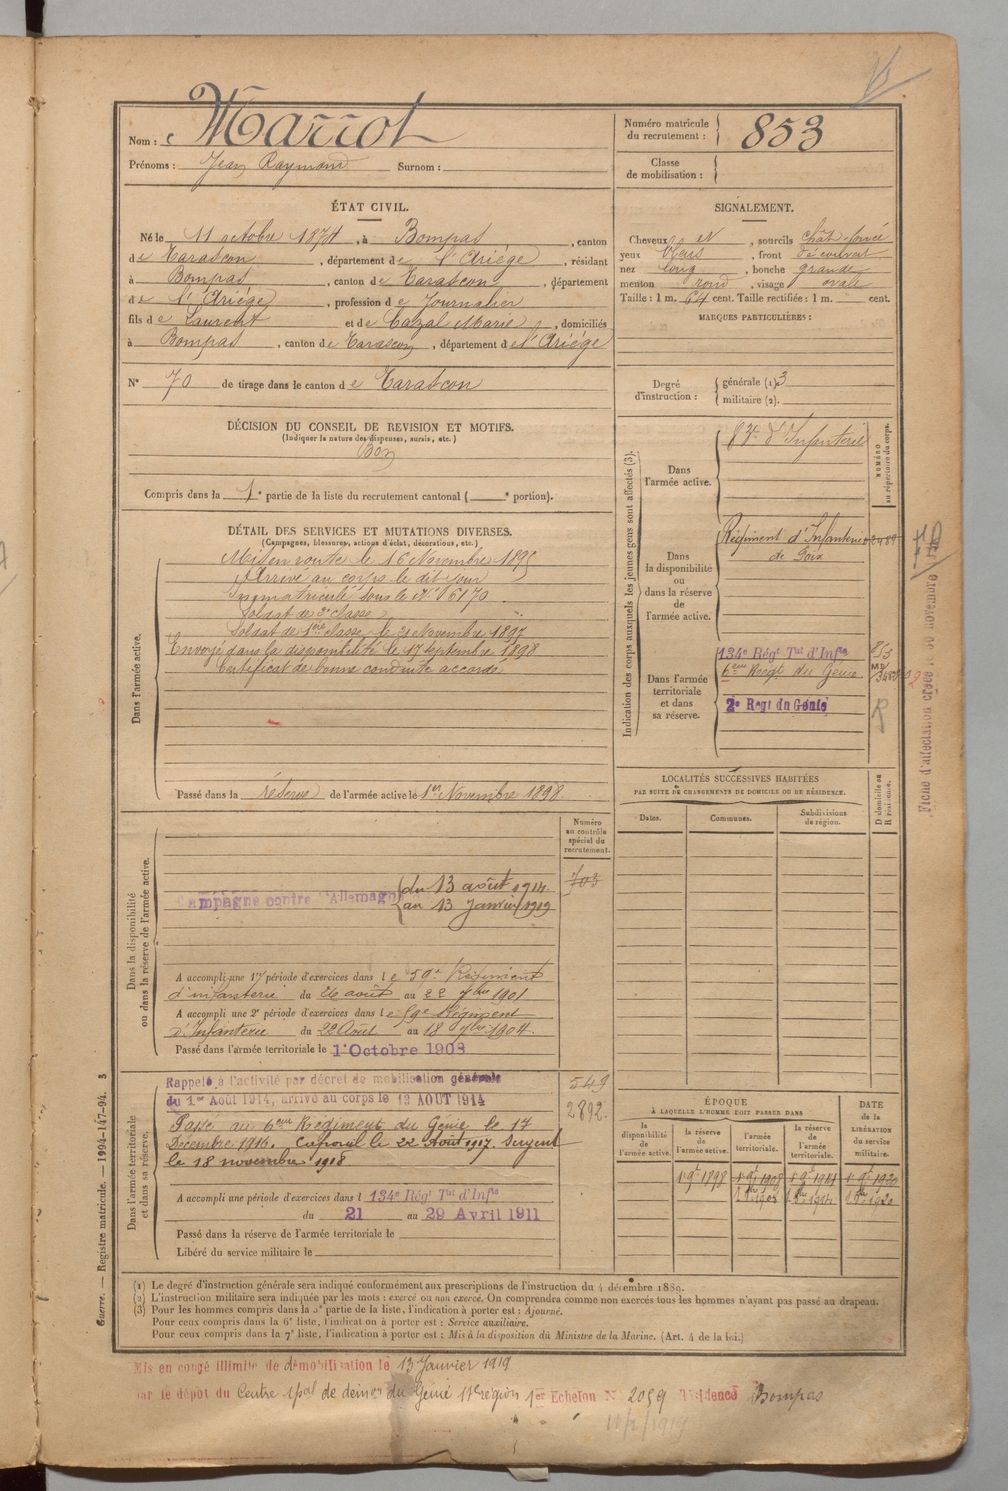 Nom : Marrot
Prénoms : Jean Raymond Surnom :
Numéro matricule du recrutement : 853
Classe de mobilisation :
ÉTAT CIVIL.
Né le 11 octobre 1874, à Bompas, canton
de Tarascon, département de l'Ariége, résidant
à Bompas, canton de Tarascon, département
de l'Ariége, profession de Journalier
fils de Laurent et de Cazal Marie, domiciliés
à Bompas, canton de Tarascon, département de l'Ariége
N° 70 de tirage dans le canton de Tarascon
SIGNALEMENT.
Cheveux et, sourcils chât-foncé
yeux, front découvert
nez long, bouche grande
menton rond, visage ovale
Taille : 1 m. 64 cent. Taille rectifiée : 1 m. cent.
MARQUES PARTICULIÈRES :
Degré d'instruction :
générale (1). 3
militaire (2).
DÉCISION DU CONSEIL DE REVISION ET MOTIFS.
(Indiquer la nature des dispenses, sursis, etc.)
Bon
Compris dans la 1e partie de la liste du recrutement cantonal ( e portion).
DÉTAIL DES SERVICES ET MUTATIONS DIVERSES.
(Campagnes, blessures, actions d'éclat, décorations, etc.)
Dans l'armée active.
Mis en route le 16 Novembre 1895
Arrivé au corps le dit jour
Immatriculé sous le N° 6170.
Soldat de 2e classe
Soldat de 1ère classe le 21 Novembre 1897
Envoyé dans la disponibilité le 17 septembre 1898
Certificat de bonne conduite accordé
Passé dans la réserve de l'armée active le 1er Novembre 1898.
Indication des corps auxquels les jeunes gens sont affectés (3).
NUMÉRO au répertoire du corps.
Dans l'armée active.
d'Infanterie
Dans la disponibilité ou dans la réserve de l'armée active.
Régiment d'Infanterie
de Foix
Dans l'armée territoriale et dans sa réserve.
134e Régt Tal d'Infie
6eme Régt du Génie
2e Régt du Génie
853
Fiche d'affectation créée le 30 novembre
LOCALITÉS SUCCESSIVES HABITÉES
PAR SUITE DE CHANGEMENTS DE DOMICILE OU DE RÉSIDENCE.
Dates. Communes. Subdivisions de région. D domicile ou R résidence.
Numéro au contrôle spécial du recrutement.
703
Dans la disponibilité ou dans la réserve de l'armée active.
Campagne contre l'Allemagne
du 13 août 1914
au 13 Janvier 1919
A accompli une 1re période d'exercices dans le 59e Régiment
d'infanterie du 26 août au 22 7bre 1901
A accompli une 2e période d'exercices dans le 59e Régiment
d'Infanterie du 22 Août au 18 7bre 1904.
Passé dans l'armée territoriale le 1er Octobre 1908
Dans l'armée territoriale et dans sa réserve.
Rappelé à l'activité par décret de mobilisation générale
du 1er Août 1914, arrivé au corps le 13 AOUT 1914
549
2892.
Passé au 6eme Régiment du Génie le 17
Décembre 1916. Caporal le 22 Août 1917. Sergent
le 18 novembre 1918
A accompli une période d'exercices dans l 134e Régt Tal d'Infie
du 21 au 29 Avril 1911
Passé dans la réserve de l'armée territoriale le
Libéré du service militaire le
ÉPOQUE
À LAQUELLE L'HOMME DOIT PASSER DANS
la disponibilité de l'armée active. la réserve de l'armée active. l'armée territoriale. la réserve de l'armée territoriale.
DATE de la LIBÉRATION du service militaire.
1 9bre 1898 1 9bre 1908 1 9bre 1914 1 9bre 1920
(1) Le degré d'instruction générale sera indiqué conformément aux prescriptions de l'instruction du 4 décembre 1889.
(2) L'instruction militaire sera indiquée par les mots : exercé ou non exercé. On comprendra comme non exercés tous les hommes n'ayant pas passé au drapeau.
(3) Pour les hommes compris dans la 5e partie de la liste, l'indication à porter est : Ajourné.
Pour ceux compris dans la 6e liste, l'indication à porter est : Service auxiliaire.
Pour ceux compris dans la 7e liste, l'indication à porter est : Mis à la disposition du Ministre de la Marine. (Art. 4 de la loi.)
Guerre. — Registre matricule. — 1994-147-94. 3
Mis en congé illimité de démobilisation le 13 Janvier 1919
par le dépôt du Centre du Génie région 1er Echelon N° 2059 Résidence Bompas